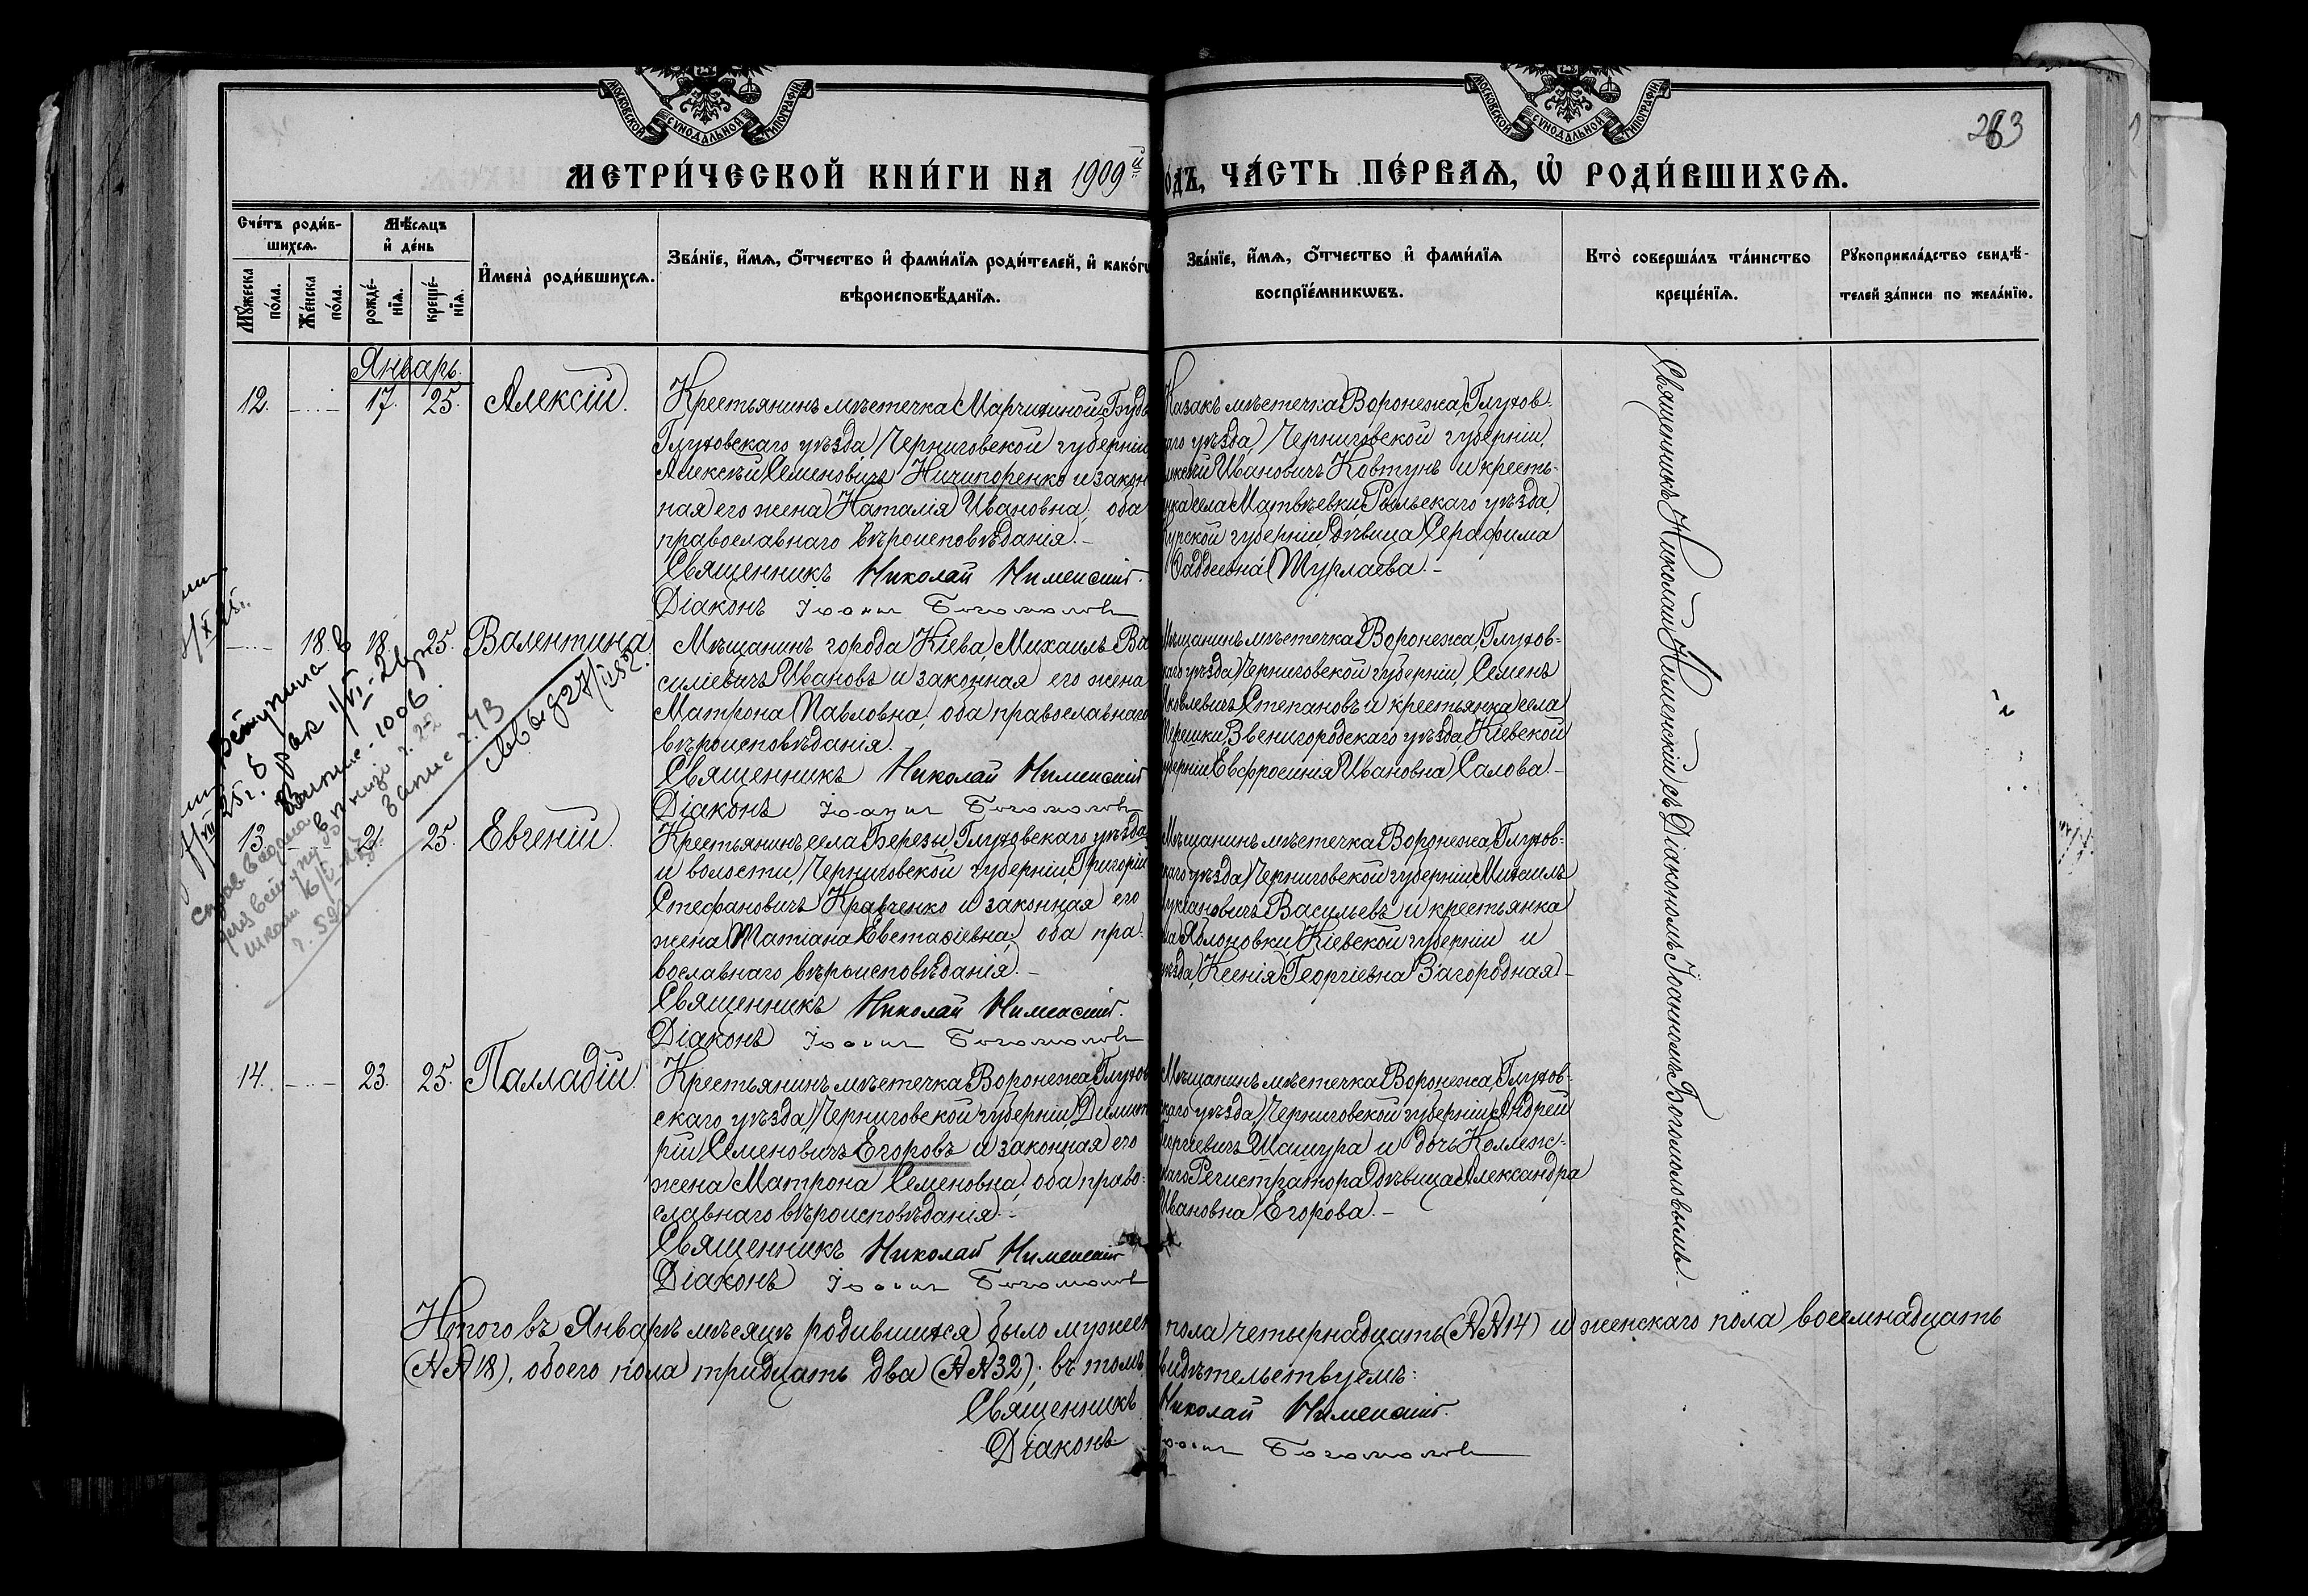 МОСКОВСКОЙ СУНОДАЛЬНОЙ ТИПОГРАФІИ
МОСКОВСКОЙ СУНОДАЛЬНОЙ ТИПОГРАФІИ
263
МЕТРИ́ЧЕСКОЙ КНИ́ГИ НА 1909й
О́ДЪ, ЧА́СТЬ ПЕ́РВАѦ, Ѽ РОДИ́ВШИХСѦ.
Сче́тъ роди́в-
шихсѧ.
Мꙋ́жеска по́ла.
Же́нска по́ла.
Мѣ́сѧцъ
и҆ де́нь
рожде́-
нїѧ.
креще́-
нїѧ.
И҆мена̀ роди́вшихсѧ.
Зва́нїе, и҆́мѧ, ѻ҆́тчество и҆ фами́лїѧ роди́телей, и҆ како́гѡ
вѣроисповѣ́данїѧ.
Зва́нїе, и҆́мѧ, ѻ҆́тчество и҆ фами́лїѧ
воспрїе́мникѡвъ.
Кто̀ соверша́лъ та́инство
креще́нїѧ.
Рꙋкоприкла́дство свидѣ́-
телей за́писи по жела́нїю.
Январь.
12. 17. 25. Алексій.
Крестьянинъ мѣстечка Марчихиной Буды
Глуховскаго уѣзда, Черниговской губерніи,
Алексѣй Семеновичъ Ничипоренко и закон
ная его жена Наталія Ивановна, оба
православнаго вѣроисповѣданія.-
Священникъ Николай Нименскій.
Діаконъ Іоаннъ Богомоловъ
Казакъ мѣстечка Воронежа, Глухов-
каго уѣзда, Черниговской губерніи,
Ивановичъ Ковтунъ и кресть-
нка села Матвѣевки, Рыльскаго уѣзда,
урской губерніи, дѣвица Серафима
Фаддеевна Турлаева.-
18. 18. 25. Валентина
Мѣщанинъ города Кіева, Михаилъ Ва
силіевичъ Ивановъ и законная его жена
Матрона Павловна, оба православнаго
вѣроисповѣданія.
Священникъ Николай Нименскій
Діаконъ Іоаннъ Богомоловъ
Мѣщанинъ мѣстечка Воронежа, Глухов-
каго уѣзда, Черниговской губерніи, Семенъ
Яковлевичъ Степановъ и крестьянка села
Звенигородскаго уѣзда, Кіевской
губерніи, Евфросинія Ивановна Салова.-
13. 21. 25. Евгеній.
Крестьянинъ села Березы, Глуховскаго уѣзда
и волости, Черниговской губерніи, Григорій
Стефановичъ Кравченко и законная его
жена Татіана Евстафіевна, оба пра-
вославнаго вѣроисповѣданія.-
Священникъ Николай Нименскій.
Діаконъ Іоаннъ Богомоловъ
Мѣщанинъ мѣстечка Воронежа, Глухов-
каго уѣзда, Черниговской губерніи, Михаилъ
Лукіановичъ Васильевъ и крестьянка
ла Яблоновки, Кіевской губерніи и
уѣзда, Ксенія Георгіевна Загородная-
14. 23. 25. Палладій.
Крестьянинъ мѣстечка Воронежа, Глухов
скаго уѣзда, Черниговской губерніи, Димит
рій Семеновичъ Егоровъ и законная его
жена Матрона Семеновна, оба право-
славнаго вѣроисповѣданія.-
Священникъ Николай Нименскій
Діаконъ Іоаннъ Богомоловъ
Мѣщанинъ мѣстечка Воронежа, Глухов-
каго уѣзда, Черниговской губерніи, Андрей
Георгіевичъ Шашура и дочь Коллеж-
каго Регистратора дѣвица Александра
Ивановна Егорова.-
Священникъ Николай Нименскій съ Діакономъ Іоанномъ Богомоловымъ.-
Вступила в
брак
запис - 1006
запис
Итого въ Январѣ мѣсяцѣ родившихся было мужеск пола четырнадцать (№№14) и женскаго пола восемнадцать
(№№18), обоего пола тридцать два (№№32); въ томъ видѣтельствуемъ:
Священникъ Николай Нименскій.
Діаконъ Іоаннъ Богомоловъ